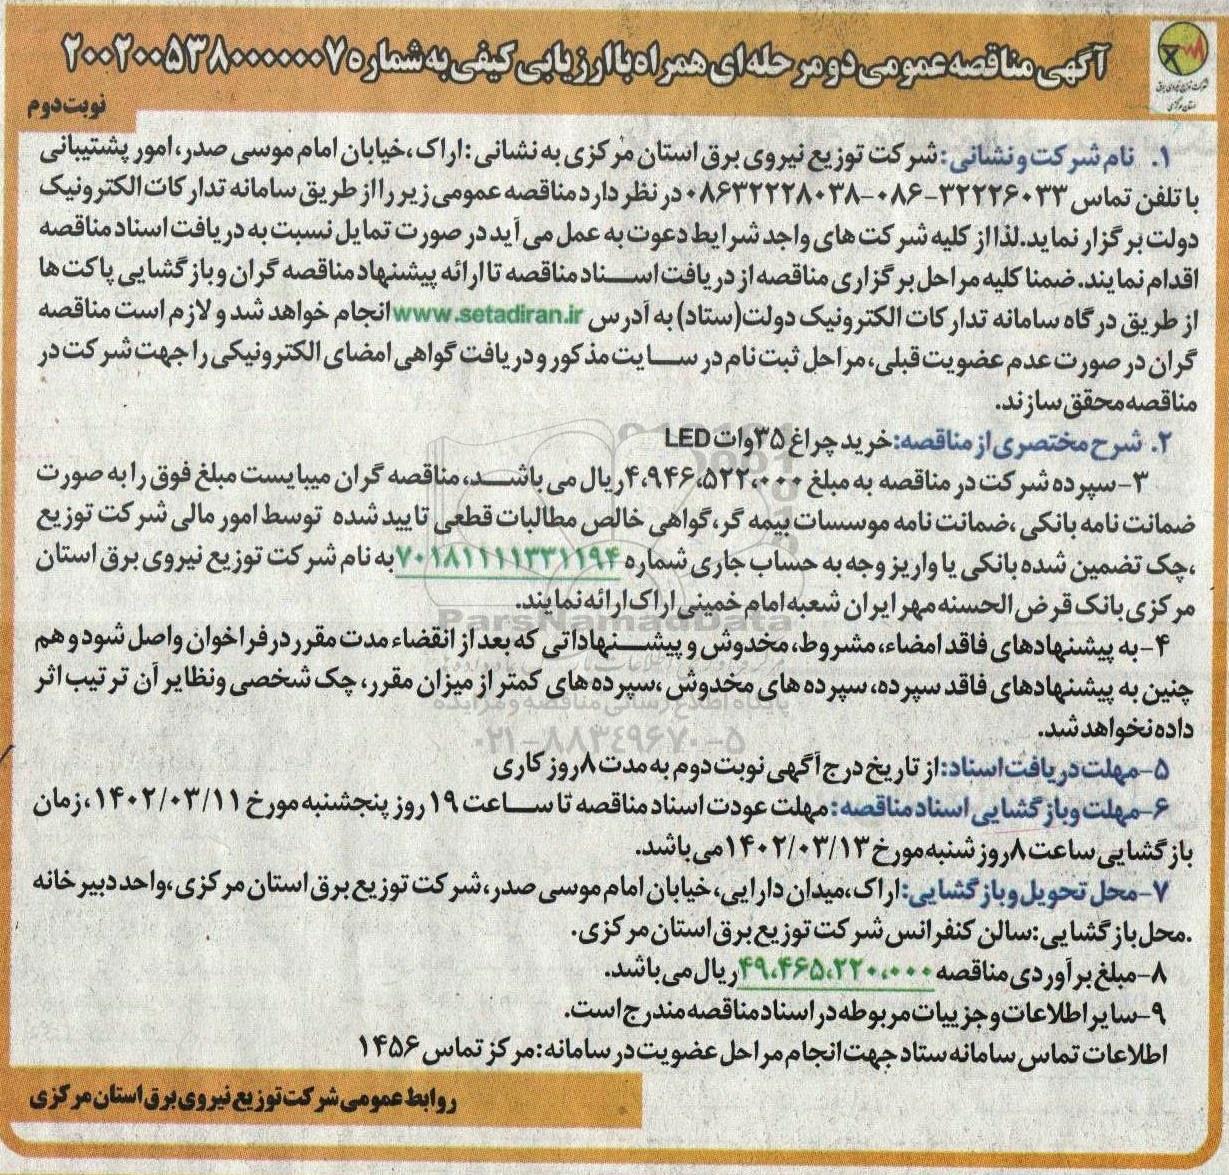 آگهی مناقصه عمومی دو مرحله ای همراه با ارزیابی کیفی به شماره ۲۰۰۲۰۰۵۳۸۰۰۰۰۰۰۷
شرکت توزیع نیروی برق
استان مرکزی
نوبت دوم
۱. نام شرکت و نشانی: شرکت توزیع نیروی برق استان مرکزی به نشانی: اراک، خیابان امام موسی صدر، امور پشتیبانی
با تلفن تماس ۳۲۲۲۶۰۳۳-۰۸۶-۰۸۶۳۲۲۲۸۰۳۸ در نظر دارد مناقصه عمومی زیر را از طریق سامانه تدارکات الکترونیک
دولت برگزار نماید. لذا از کلیه شرکت های واجد شرایط دعوت به عمل می آید در صورت تمایل نسبت به دریافت اسناد مناقصه
اقدام نمایند. ضمنا کلیه مراحل برگزاری مناقصه از دریافت اسناد مناقصه تا ارائه پیشنهاد مناقصه گران و بازگشایی پاکت ها
از طریق درگاه سامانه تدارکات الکترونیک دولت (ستاد) به آدرس www.setadiran.ir انجام خواهد شد و لازم است مناقصه
گران در صورت عدم عضویت قبلی، مراحل ثبت نام در سایت مذکور و دریافت گواهی امضای الکترونیکی را جهت شرکت در
مناقصه محقق سازند.
۲. شرح مختصری از مناقصه: خرید چراغ ۳۵ وات LED
۳-سپرده شرکت در مناقصه به مبلغ ۴،۹۴۶،۵۲۲،۰۰۰ ریال می باشد، مناقصه گران میبایست مبلغ فوق را به صورت
ضمانت نامه بانکی، ضمانت نامه موسسات بیمه گر، گواهی خالص مطالبات قطعی تایید شده توسط امور مالی شرکت توزیع
، چک تضمین شده بانکی یا واریز وجه به حساب جاری شماره ۷۰۱۸۱۱۱۱۳۳۱۱۹۴ به نام شرکت توزیع نیروی برق استان
مرکزی بانک قرض الحسنه مهر ایران شعبه امام خمینی اراک ارائه نمایند.
ParsNamadData
۴-به پیشنهادهای فاقد امضاء، مشروط، مخدوش و پیشنهاداتی که بعد از انقضاء مدت مقرر در فراخوان واصل شود و هم
چنین به پیشنهادهای فاقد سپرده، سپرده های مخدوش، سپرده های کمتر از میزان مقرر، چک شخصی و نظایر آن ترتیب اثر
پایگاه اطلاع رسانی مناقصه و مزایده
داده نخواهد شد.
۰۲۱-۸۸۳۴۹۶۷۰-۵
۵-مهلت دریافت اسناد: از تاریخ درج آگهی نوبت دوم به مدت ۸ روز کاری
۶-مهلت و بازگشایی اسناد مناقصه: مهلت عودت اسناد مناقصه تا ساعت ۱۹ روز پنجشنبه مورخ ۱۴۰۲/۰۳/۱۱، زمان
بازگشایی ساعت ۸ روز شنبه مورخ ۱۴۰۲/۰۳/۱۳ می باشد.
۷-محل تحویل و بازگشایی: اراک، میدان دارایی، خیابان امام موسی صدر، شرکت توزیع برق استان مرکزی، واحد دبیرخانه
.محل بازگشایی: سالن کنفرانس شرکت توزیع برق استان مرکزی.
۸-مبلغ برآوردی مناقصه ۴۹،۴۶۵،۲۲۰،۰۰۰ ریال می باشد.
۹-سایر اطلاعات و جزییات مربوطه در اسناد مناقصه مندرج است.
اطلاعات تماس سامانه ستاد جهت انجام مراحل عضویت در سامانه: مرکز تماس ۱۴۵۶
روابط عمومی شرکت توزیع نیروی برق استان مرکزی